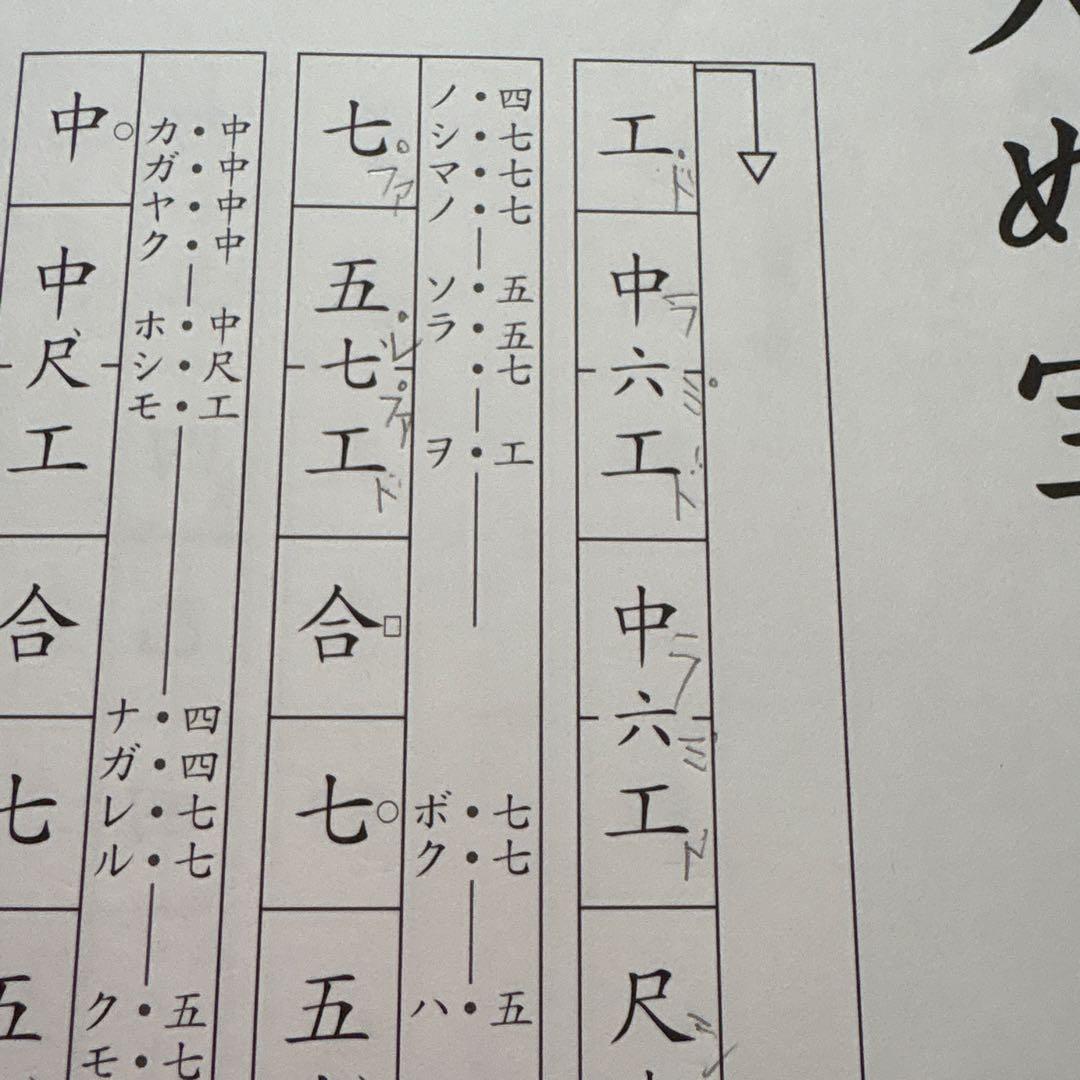 人ぬ宝
工中六工中六工尺
ドラミドラミド
四七七七五五七工七七五
ノシマノソラヲボクハ
七○五七工合□七○五
ファレファド
中中中中中尺工四四七七五七
カガヤクホシモナガレルクモ
中○中尺工合七五